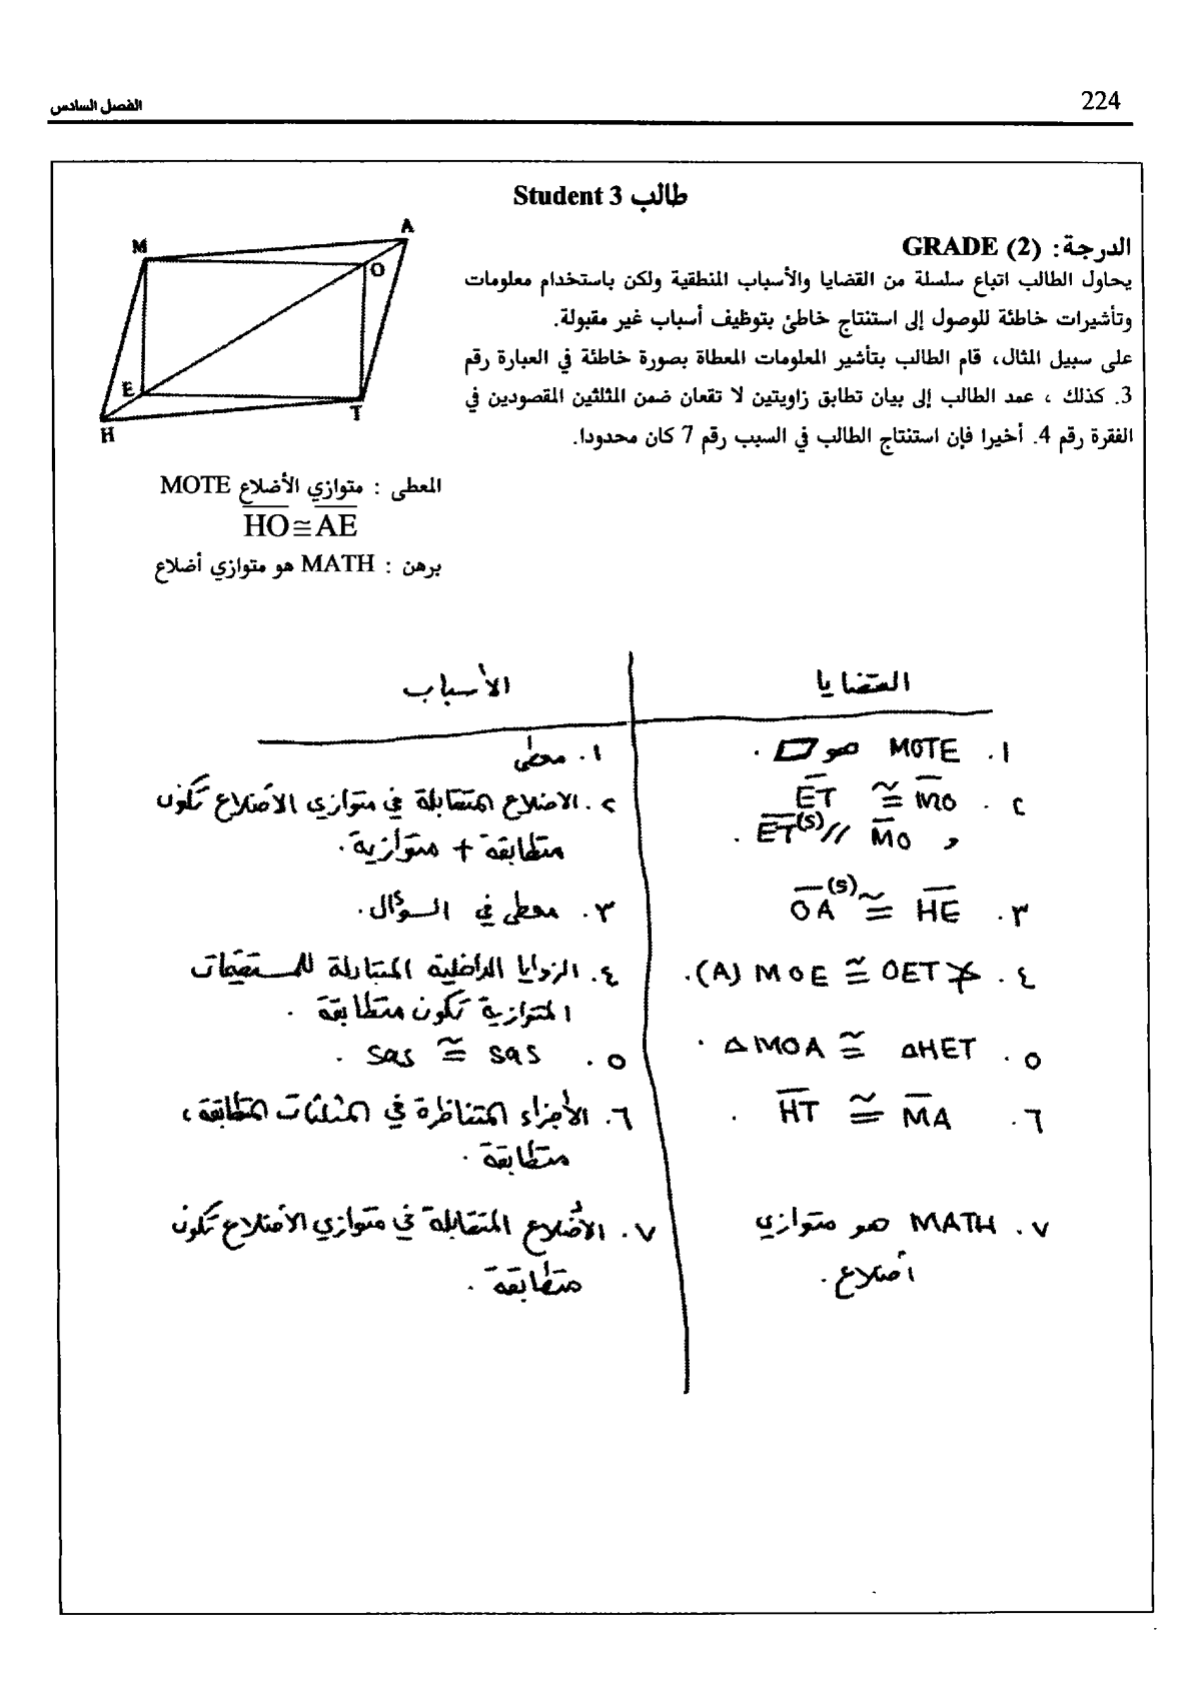 224
الفصل السادس
طالب Student 3
الدرجة: GRADE (2)
يحاول الطالب اتباع سلسلة من القضايا والأسباب المنطقية ولكن باستخدام معلومات
وتأشيرات خاطئة للوصول إلى استنتاج خاطئ بتوظيف أسباب غير مقبولة.
على سبيل المثال، قام الطالب بتأشير المعلومات المعطاة بصورة خاطئة في العبارة رقم
3. كذلك ، عمد الطالب إلى بيان تطابق زاويتين لا تقعان ضمن المثلثين المقصودين في
الفقرة رقم 4. أخيرا فإن استنتاج الطالب في السبب رقم 7 كان محدودا.
M
A
O
E
T
H
المعطى : متوازي الأضلاع MOTE
HO ≅ AE
برهن : MATH هو متوازي أضلاع
القضايا
الأسباب
١. MOTE هو ▱ .
١. معطى
٢. MO ≅ ET
و MO // ET (S) .
٢. الاضلاع المتقابلة في متوازي الأضلاع تكون
متطابقة + متوازية .
٣. HE ≅ OA (S)
٣. معطى في السؤال .
٤. ∠ OET ≅ MOE (A) .
٤. الزوايا الداخلية المتبادلة للمستقيمات
المتوازية تكون متطابقة .
٥. △HET ≅ △MOA .
٥. sas ≅ sas .
٦. MA ≅ HT .
٦. الأجزاء المتناظرة في المثلثات المتطابقة ،
متطابقة .
٧. MATH هو متوازي
أضلاع .
٧. الأضلاع المتقابلة في متوازي الأضلاع تكون
متطابقة .